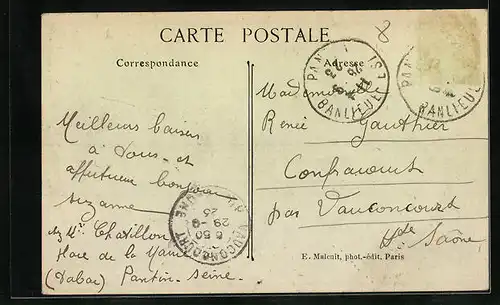 CARTE POSTALE
8
Correspondance
Adresse
Meilleurs baisers
à tous et
affectueux bonjour
Suzanne
Chatillon
Place de la
(Tabac) Pantin - Seine
Mademoiselle
Renée Gauthier
Confracourt
par Vauconcourt
Hte Saône
PANTIN
BANLIEUE
BANLIEUE
VAUCONCOURT
6 50
29 -9
23
E. Malcuit, phot.-édit, Paris